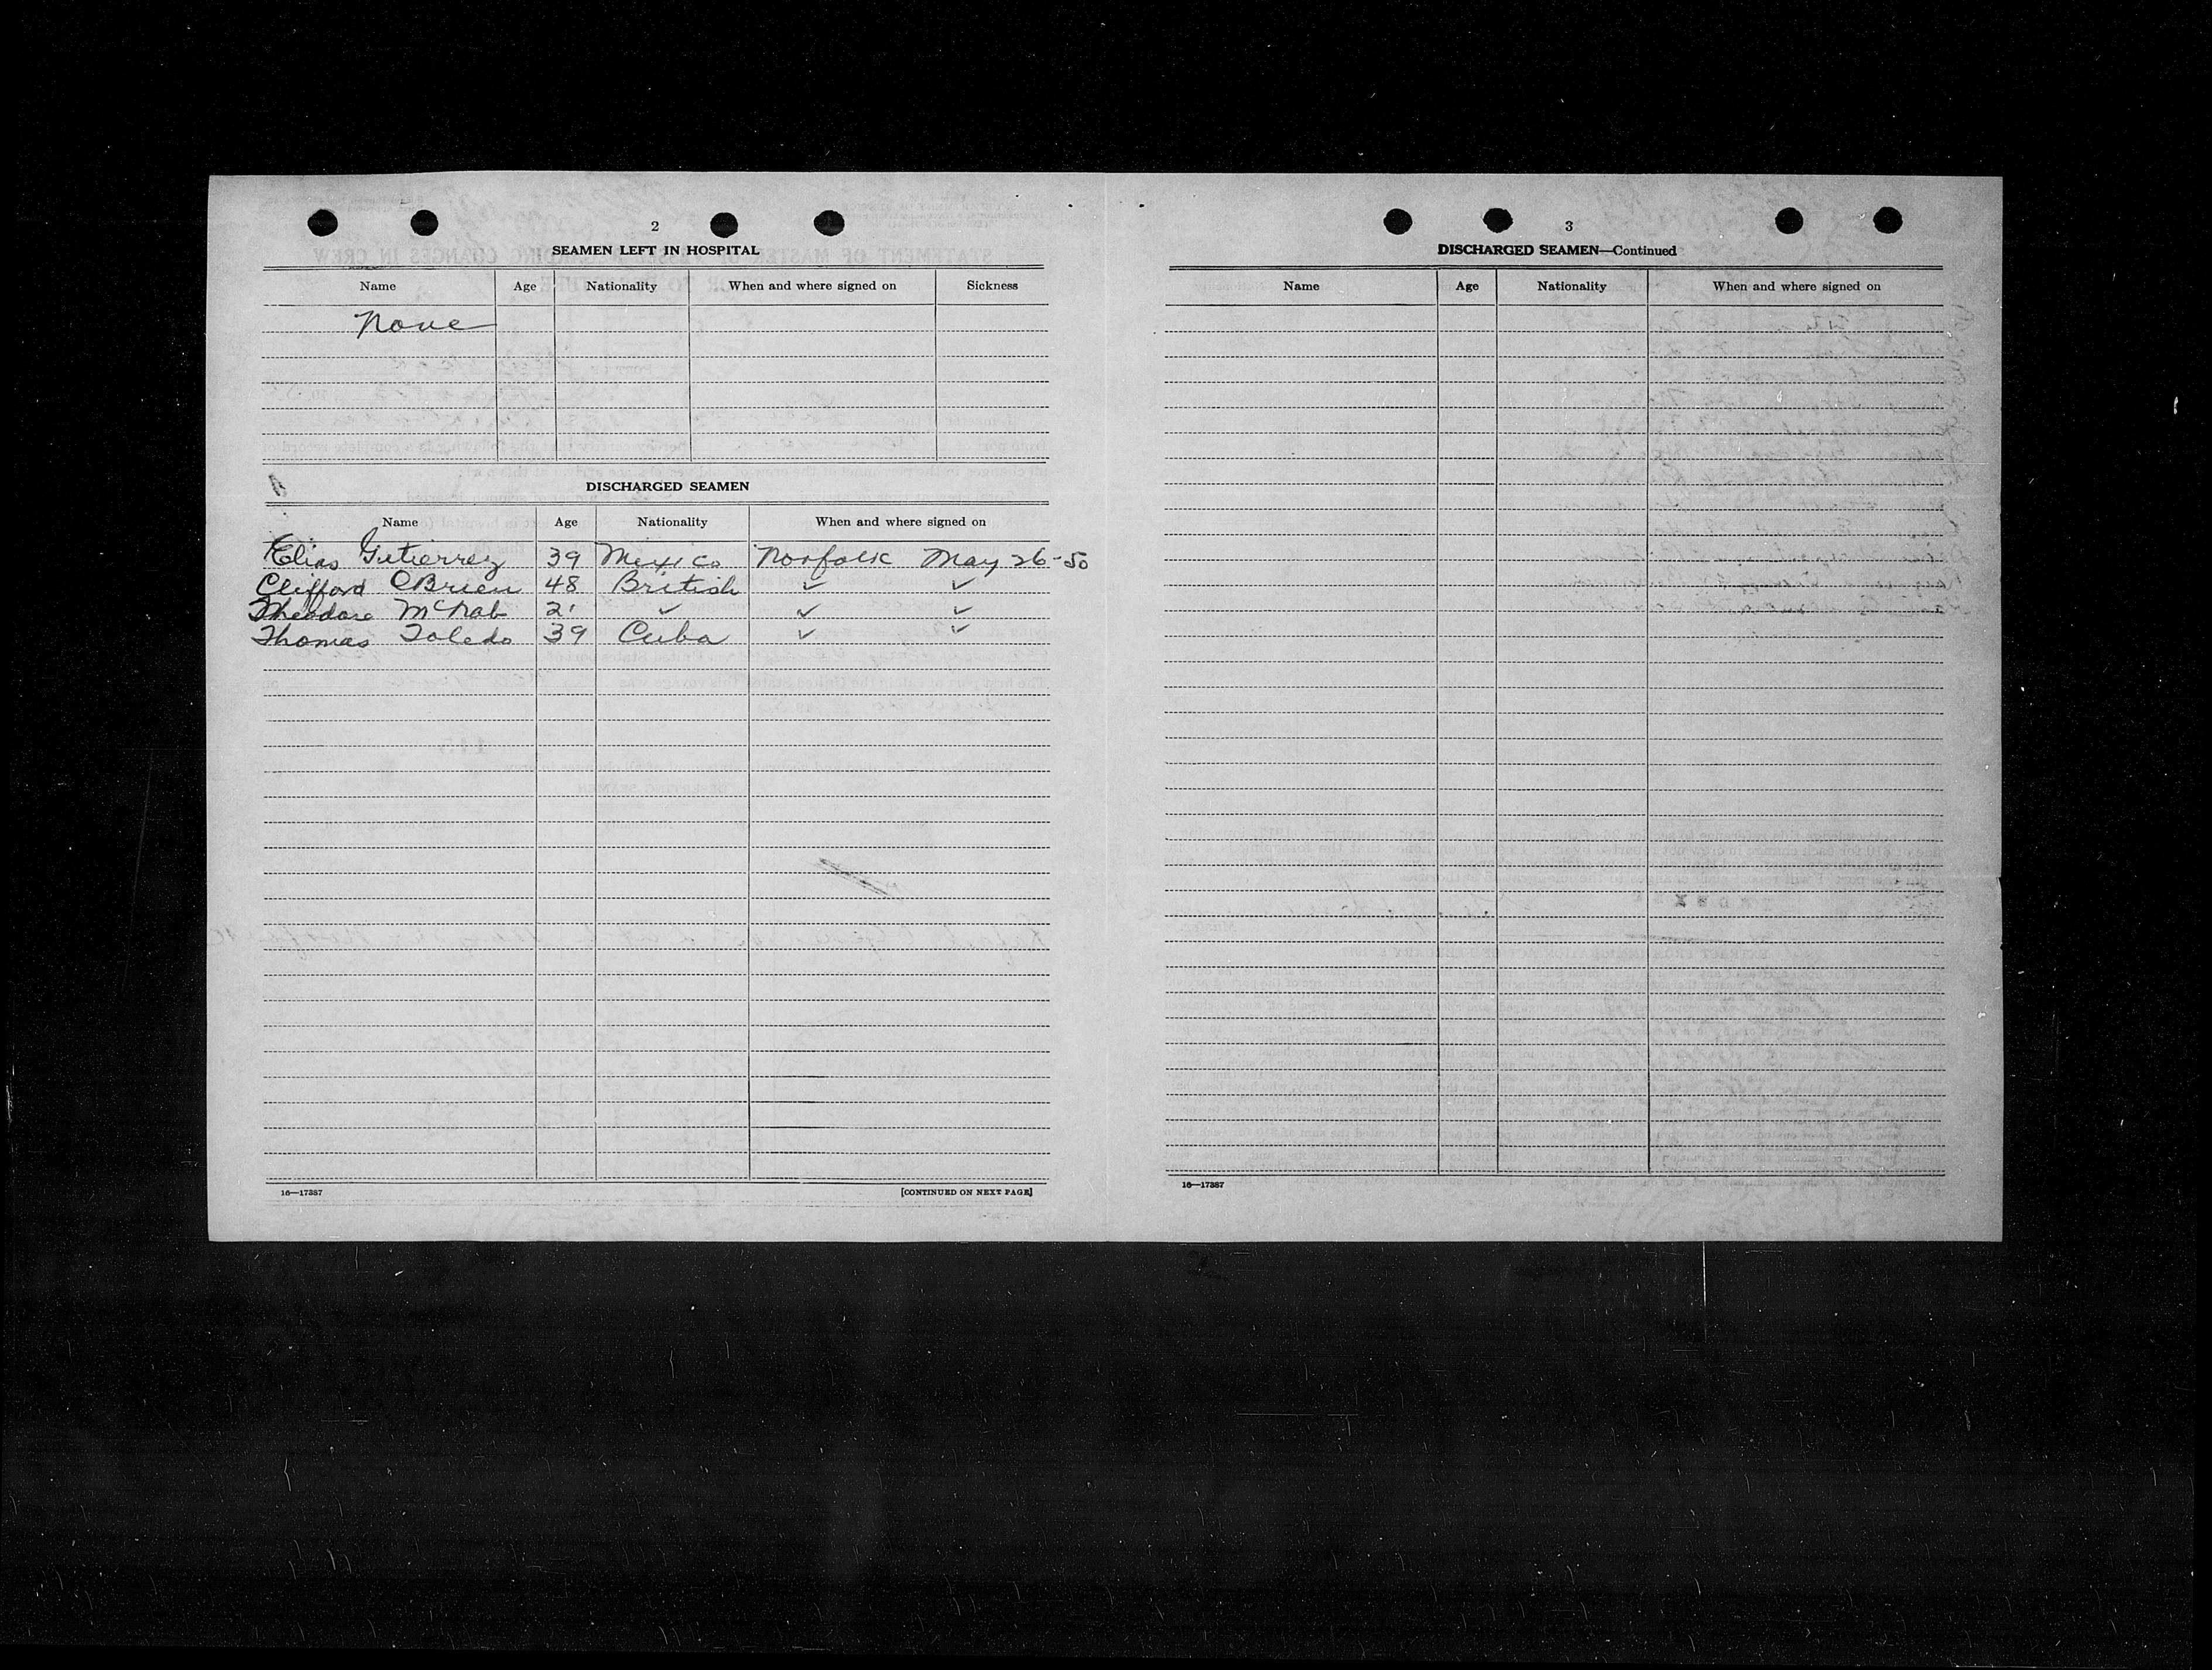 2
SEAMEN LEFT IN HOSPITAL
Name Age Nationality When and where signed on Sickness
None
DISCHARGED SEAMEN
Name Age Nationality When and where signed on
Elias Gutierrez 39 Mexico Norfolk May 26-50
Clifford OBrien 48 British ✓ ✓
Theodore McNab 21 ✓ ✓ ✓
Thomas Toledo 39 Cuba ✓ ✓
16—17387 [CONTINUED ON NEXT PAGE]
3
DISCHARGED SEAMEN—Continued
Name Age Nationality When and where signed on
16—17387